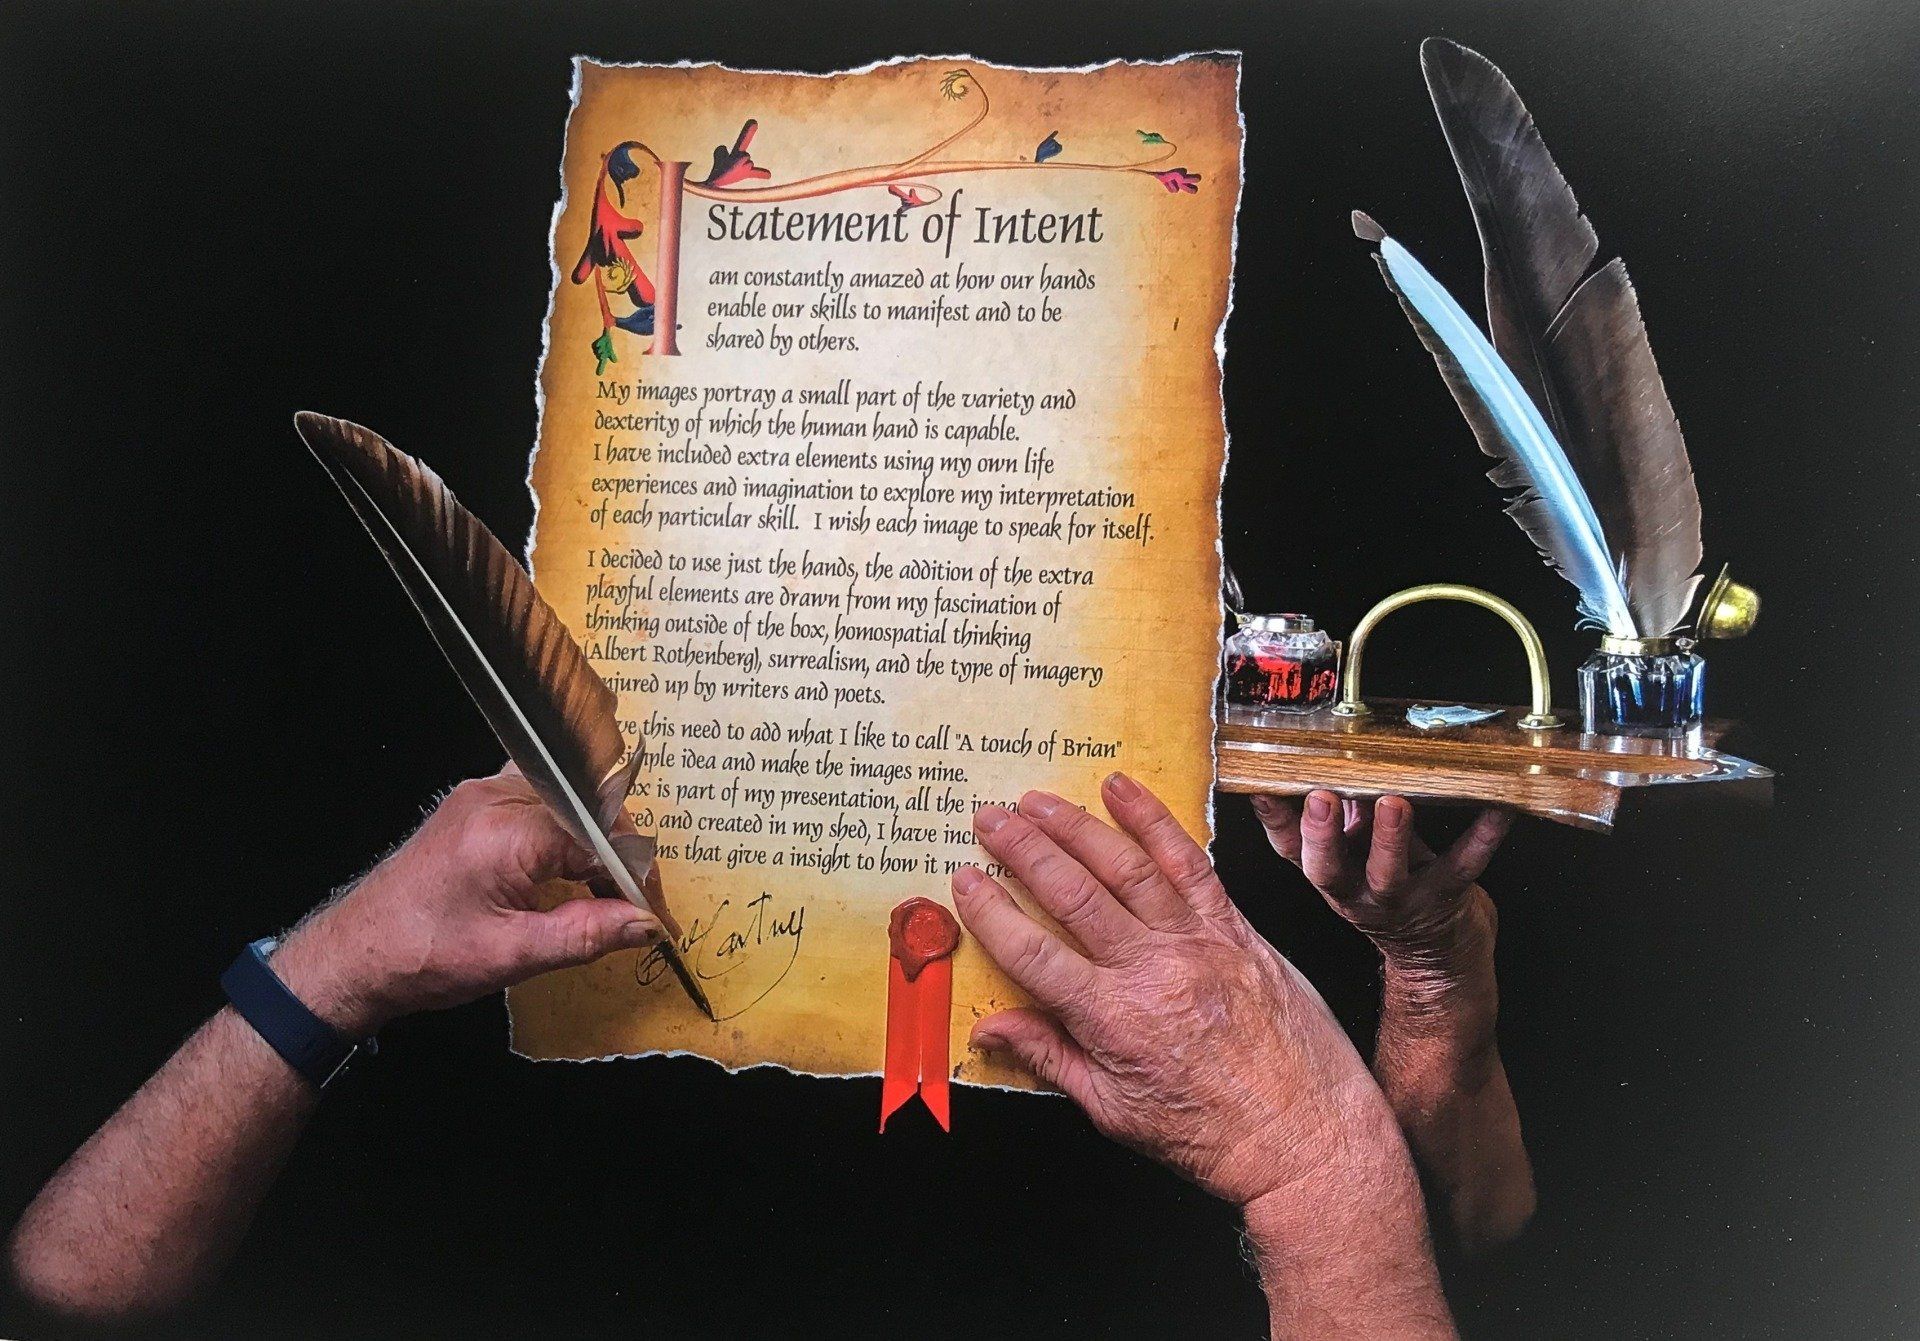 Statement of Intent
I am constantly amazed at how our hands
enable our skills to manifest and to be
shared by others.
My images portray a small part of the variety and
dexterity of which the human hand is capable.
I have included extra elements using my own life
experiences and imagination to explore my interpretation
of each particular skill. I wish each image to speak for itself.
I decided to use just the hands, the addition of the extra
playful elements are drawn from my fascination of
thinking outside of the box, homospatial thinking
(Albert Rothenberg), surrealism, and the type of imagery
up by writers and poets.
this need to add what I like to call "A touch of Brian"
simple idea and make the images mine.
is part of my presentation, all the
and created in my shed, I have
that give a insight to how it was